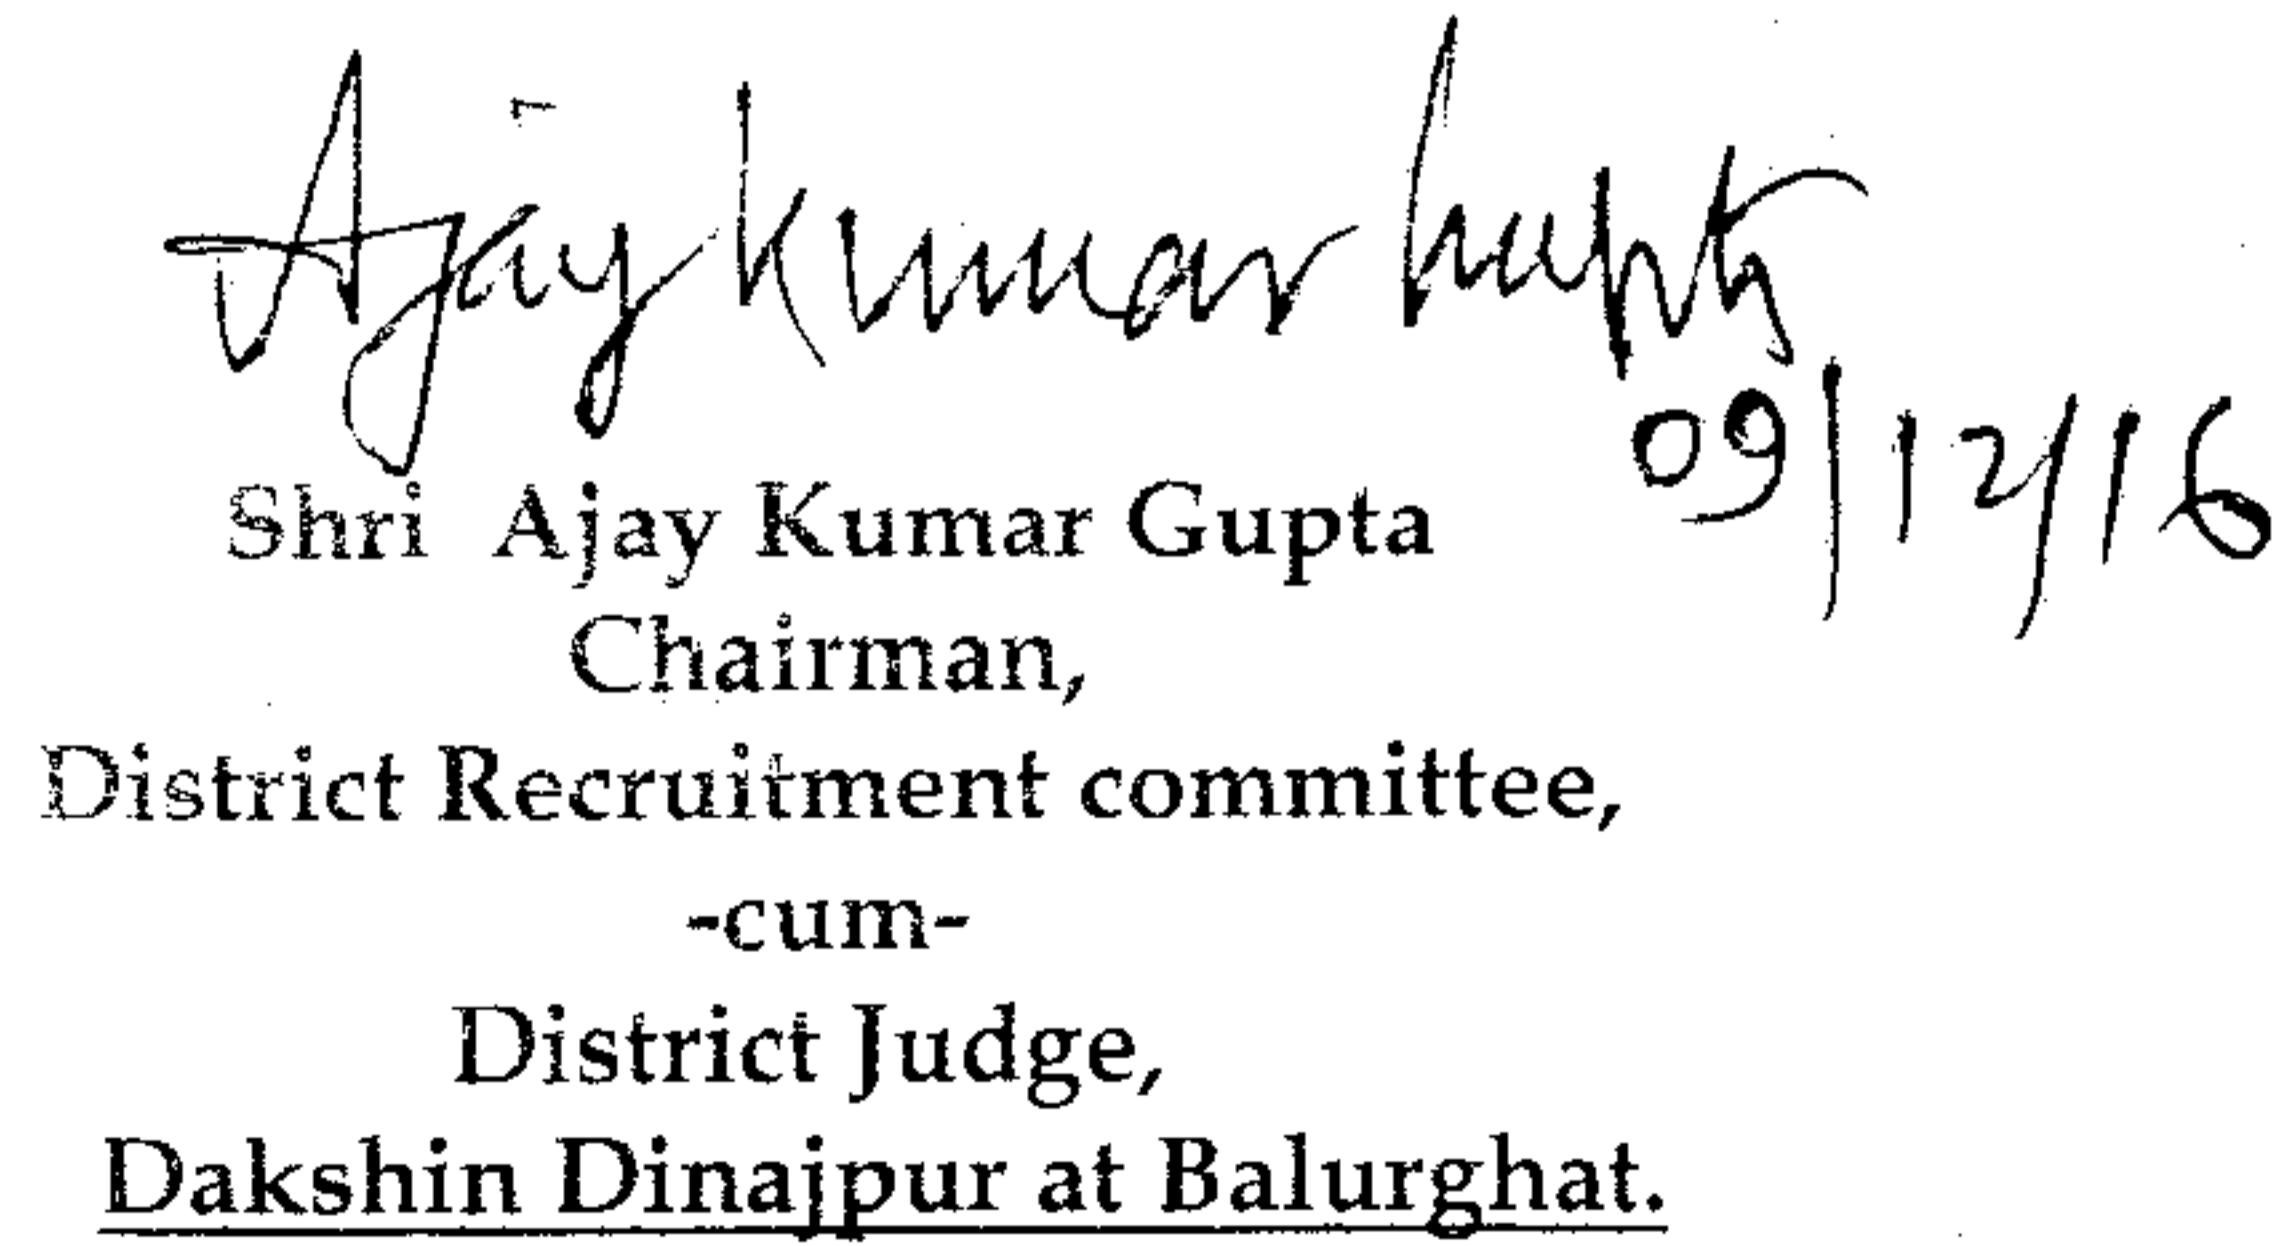 Ajay Kumar Gupta
09/12/16
Shri Ajay Kumar Gupta
Chairman,
District Recruitment committee,
-cum-
District Judge,
Dakshin Dinajpur at Balurghat.